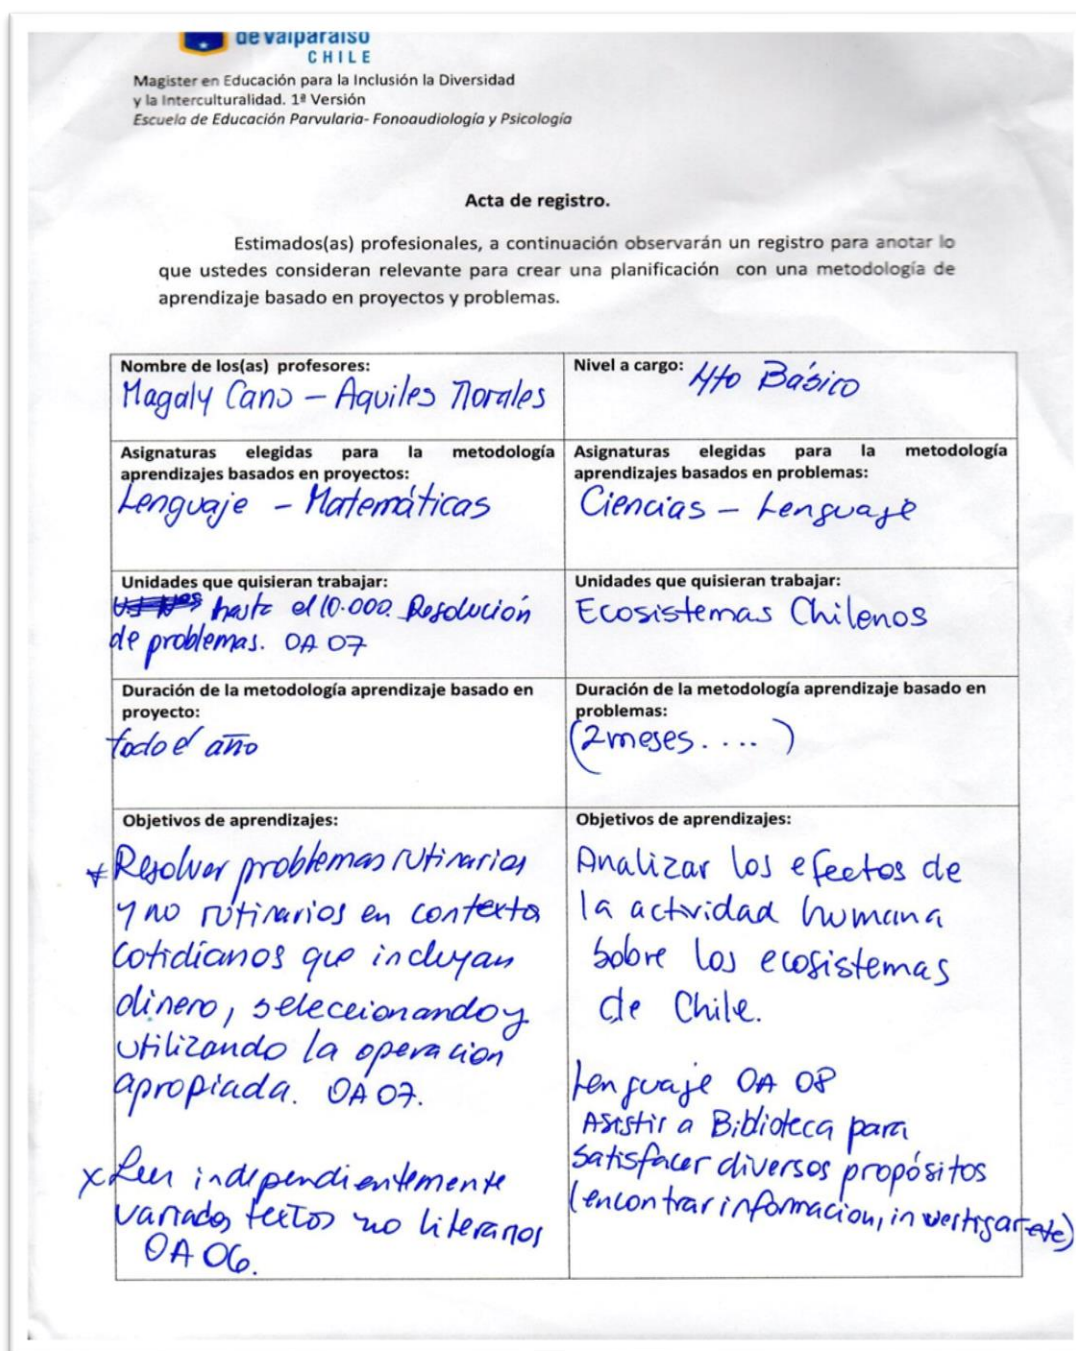 de Valparaíso
CHILE
Magister en Educación para la Inclusión la Diversidad
y la Interculturalidad. 1ª Versión
Escuela de Educación Parvularia- Fonoaudiología y Psicología
Acta de registro.
Estimados(as) profesionales, a continuación observarán un registro para anotar lo
que ustedes consideran relevante para crear una planificación con una metodología de
aprendizaje basado en proyectos y problemas.
Nombre de los(as) profesores:
Magaly Cano – Aquiles Morales
Nivel a cargo: 4to Básico
Asignaturas elegidas para la metodología
aprendizajes basados en proyectos:
Lenguaje – Matemáticas
Asignaturas elegidas para la metodología
aprendizajes basados en problemas:
Ciencias – Lenguaje
Unidades que quisieran trabajar:
hasta el 10.000. Resolución
de problemas. OA 07
Unidades que quisieran trabajar:
Ecosistemas Chilenos
Duración de la metodología aprendizaje basado en
proyecto:
todo el año
Duración de la metodología aprendizaje basado en
problemas:
(2 meses. ... )
Objetivos de aprendizajes:
* Resolver problemas rutinarios
y no rutinarios en contexto
cotidianos que incluyan
dinero, seleccionando y
utilizando la operacion
apropiada. OA 07.
x Leer independientemente
variados textos no literarios
OA 06.
Objetivos de aprendizajes:
Analizar los efectos de
la actividad humana
sobre los ecosistemas
de Chile.
Lenguaje OA 08
Asistir a Biblioteca para
satisfacer diversos propósitos
(encontrar informacion, investigar etc)